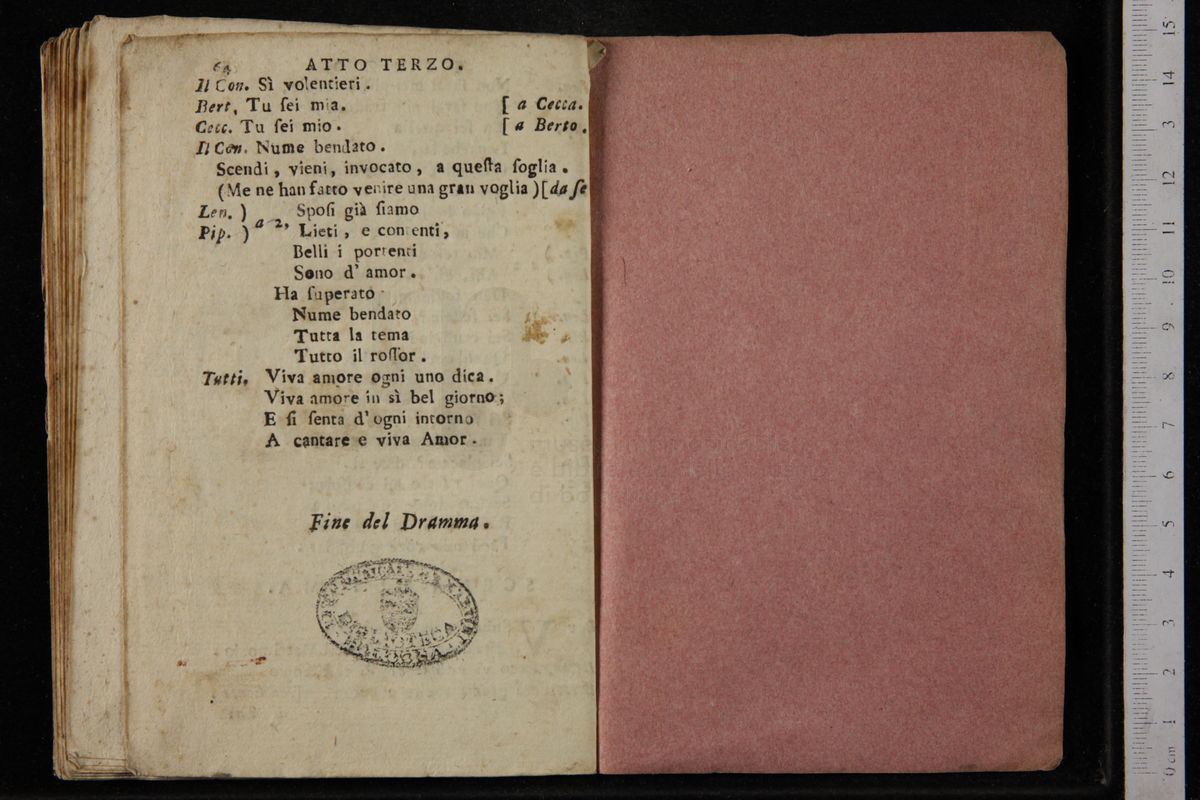 64 ATTO TERZO.
Il Con. Sì volentieri.
Bert. Tu ſei mia. [ a Cecca.
Cecc. Tu ſei mio. [ a Berto.
Il Con. Nume bendato.
Scendi, vieni, invocato, a queſta ſoglia.
(Me ne han fatto venire una gran voglia) [da ſe
Len. ) Spoſi già ſiamo
Pip. ) a 2, Lieti, e contenti,
Belli i portenti
Sono d' amor.
Ha ſuperato
Nume bendato
Tutta la tema
Tutto il roſſor.
Tutti. Viva amore ogni uno dica.
Viva amore in sì bel giorno;
E ſi ſenta d' ogni intorno
A cantare e viva Amor.
Fine del Dramma.
BIBLIOTECA
BOLOGNA
0 cm 1 2 3 4 5 6 7 8 9 10 11 12 3 14 15